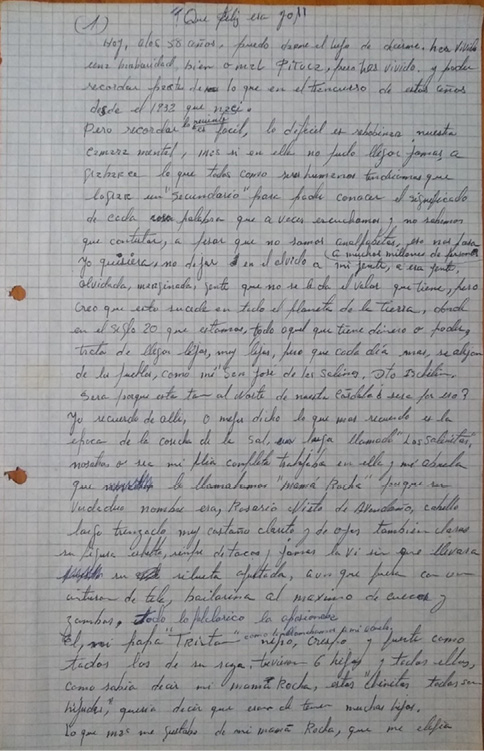 (1) "Que feliz era yo"!!
Hoy, a los 58 años, puedo darme el lujo de decirme. has vivido
una barbaridad, bien o mal Pituca, pero has vivido. y poder
recordar partes de lo que en el trancurso de estos años
desde el 1932 que nací.
Pero recordar lo reciente es facil, lo dificil es rebobinar nuestra
camara mental, mas si en ella no pudo llegar jamas a
grabarse lo que todos como seres humanos tendriamos que
lograr un "Secundario" para poder conocer el significado
de cada palabra que a veces escuchamos y no sabemos
que contestar, a pesar que no somos analfabetos, eso nos pasa
a muchos millones de personas
Yo quisiera, no dejar en el olvido a mi gente, a esa gente,
olvidada, marginada, gente que no se le da el valor que tiene, pero
creo que esto sucede en todo el planeta de la Tierra, donde
en el siglo 20 que estamos, todo aquel que tiene dinero o poder,
trata de llegar lejos, muy lejos, pero que cada día mas, se alejan
de tu pueblo, como mi San José de las Salinas, Dto Ischilin.
Sera porque esta tan al Norte de nuestra Cordoba o sera por eso?
Yo recuerdo de alla, o mejor dicho lo que mas recuerdo es la
epoca de la cosecha de la Sal, lugar llamado "Las Salinitas,
nosotros o sea mi flia completa trabajaba en ella y mi abuela
que le llamabamos "Mamá Rocha" porque su
verdadero nombre era, Rosario Nieto de Avendaño, cabello
largo trenzado, muy castaño clarito y de ojos tambien claros
su figura esbelta, siempre de tacos y jamas la vi sin que llevara
su silueta ajustada, aunque fuera con un
cinturon de tela, bailarina al maximo de cuecas y
zambas, todo lo folclorico la apasionaba
El, mi papa "Tristan" como le llamabamos a mi abuelo
negro, crespo y fuerte como
todos los de su raza. tuvieron 6 hijos y todas ellas,
como sabia decir mi mamá Rocha, estas "chinitas todas son
hijudas", queria decir que eran de tener muchos hijos.
Lo que mas me gustaba de mi mamá Rocha, que me elegia